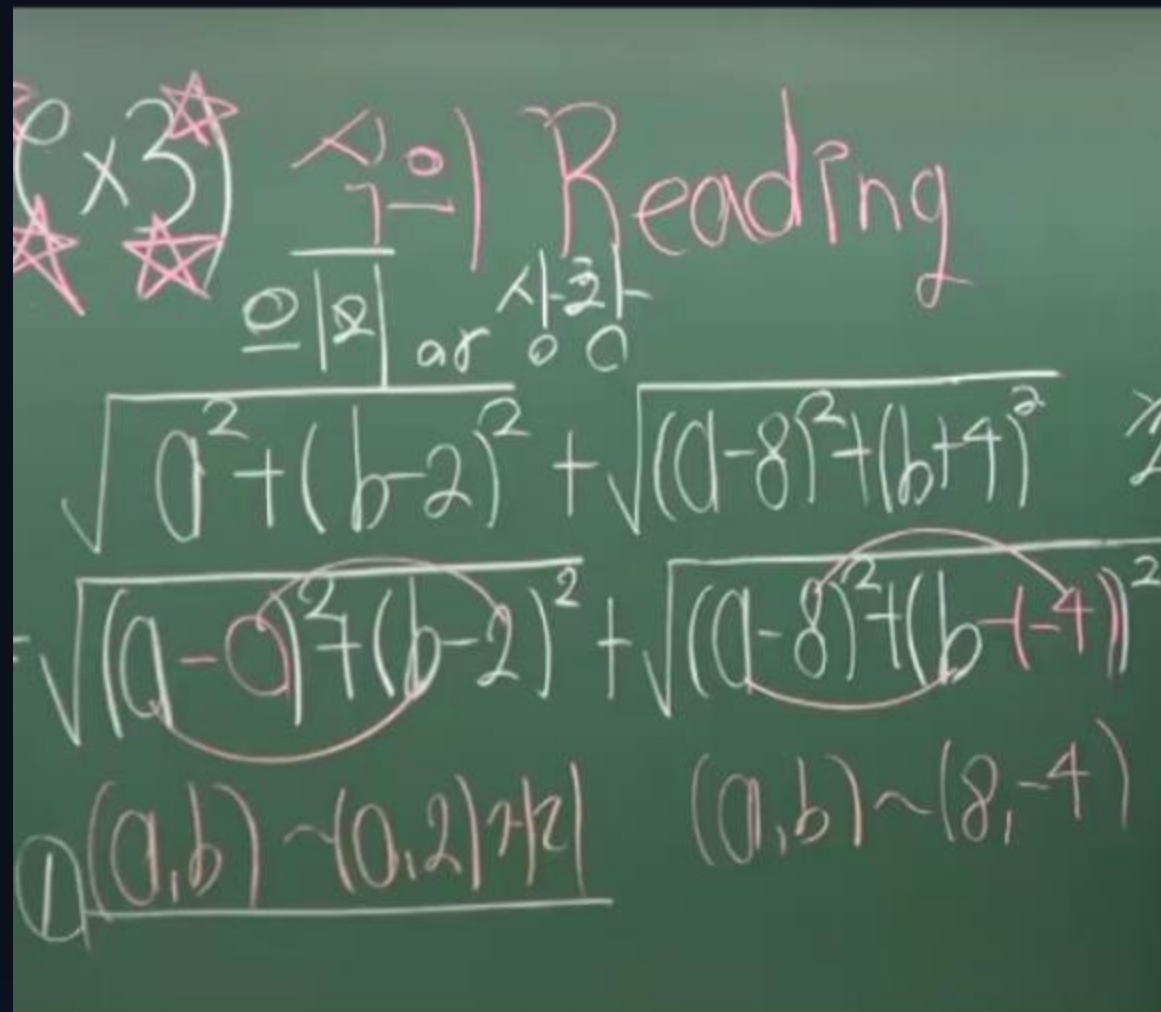 ex3) 식의 Reading
의미 or 상황
√a²+(b-2)² + √(a-8)²+(b+4)²
=√(a-0)²+(b-2)² + √(a-8)²+(b-(-4))²
①(a,b)~(0,2)거리 (a,b)~(8,-4)